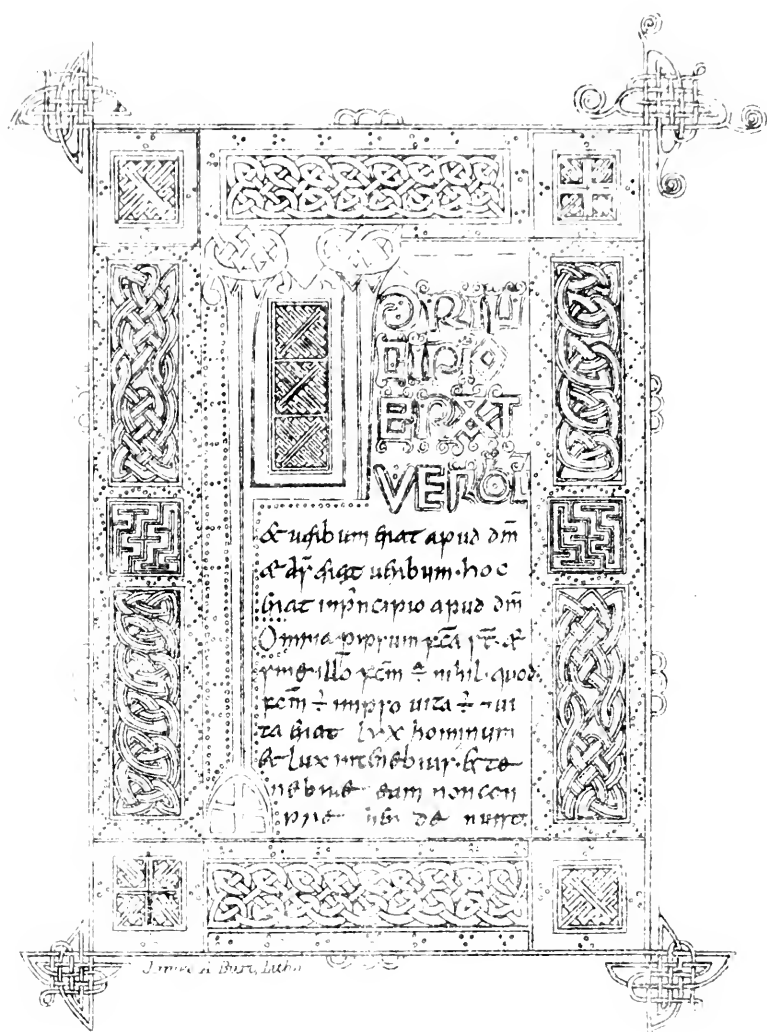 IN PRIN
CIPIO
ERAT
VERBU
& uerbum erat apud dm̄
& ds̄ erat uerbum· hoc
erat inprincipio apud dm̄
Omnia p̄ ipsum fc̄a st̄· &
sine illo fcm̄ ÷ nihil· quod
fcm̄ ÷ inipso uita ÷ ⁊ui
ta erat lux hominum
& lux intenebris· & te
nebrae eam non con
James A Burt, Litho